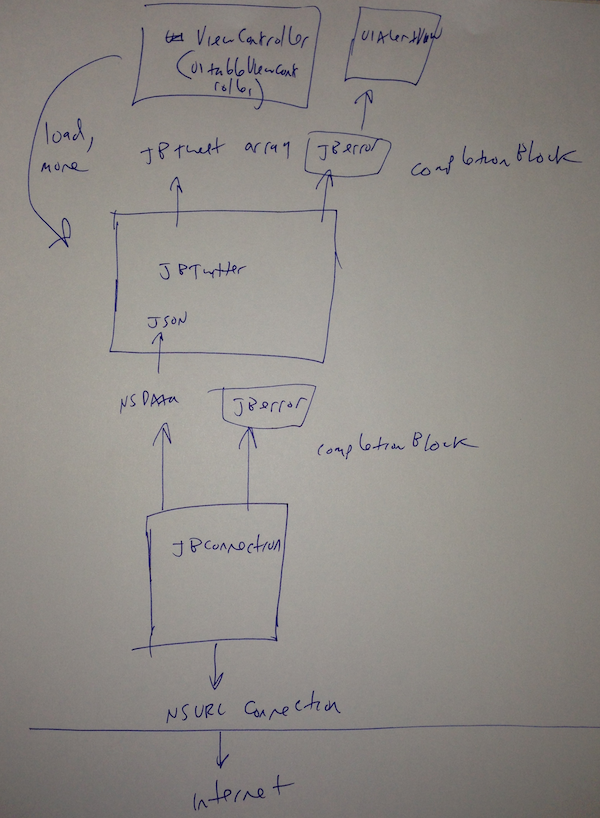 ViewController
UIAlertView
(UITableViewCont
roller)
load,
more
JBTweet array
JBerror
completionBlock
JBTwitter
JSON
NSData
JBerror
completionBlock
JBConnection
NSURL Connection
Internet